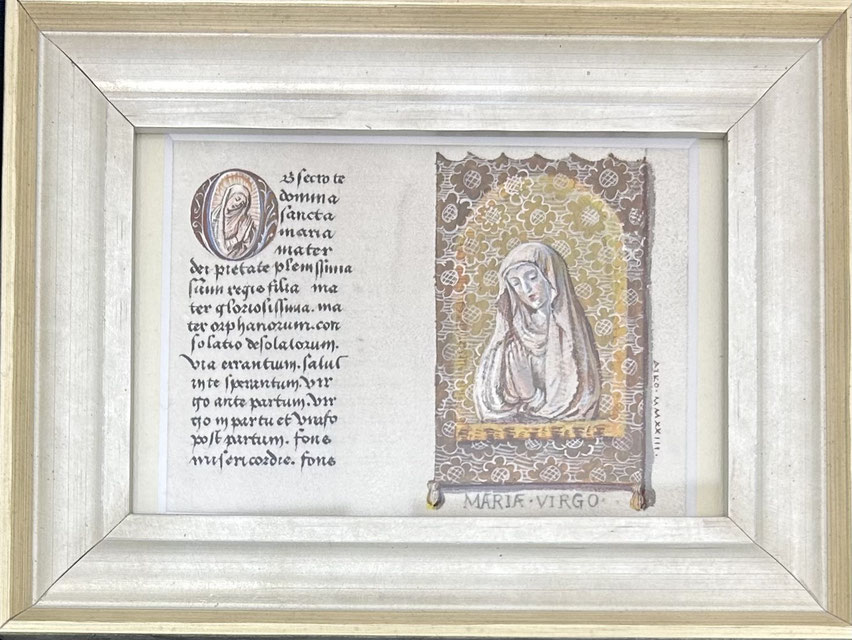 Obsecro te
domina
sancta
maria
mater
dei pietate plenissima
summi regis filia ma
ter gloriosissima. ma
ter orphanorum. con
solatio desolatorum.
via errantium. salus
in te sperantum. vir
go ante partum. vir
go in partu et virgo
post partum. fons
misericordie. fons
MARIÆ · VIRGO ·
AIKO · MMXXIII ·